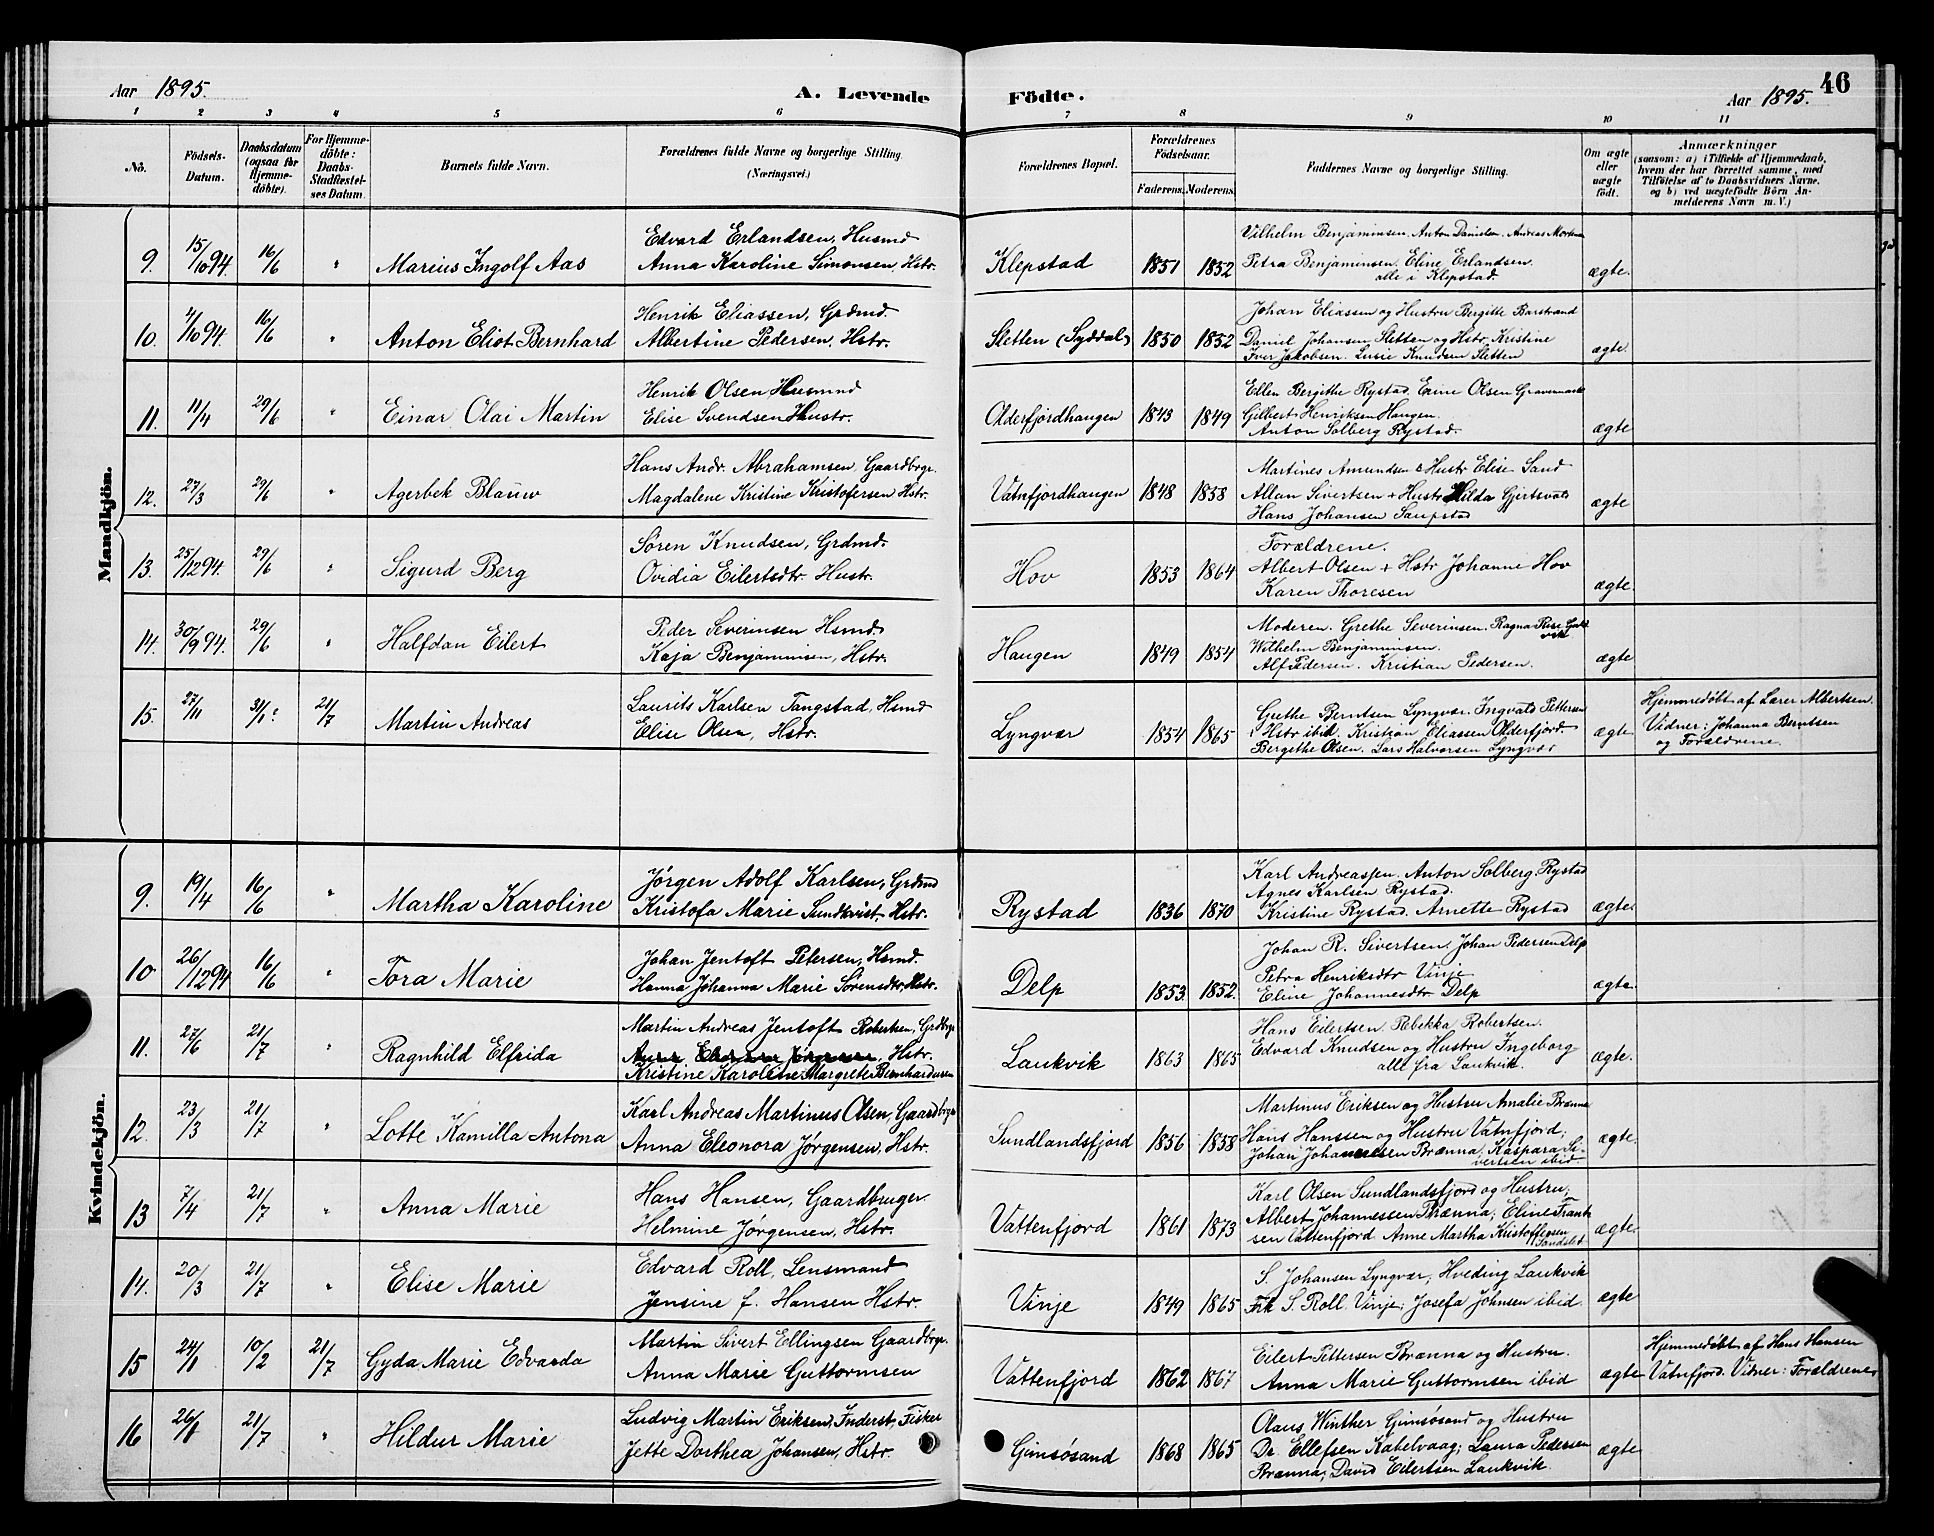 Aar 1895.
A. Levende Födte.
Aar 1895.
46
1 2 3 4 5 6 7 8 9 10 11
No.
Födsels-Datum.
Daabsdatum (ogsaa for Hjemme-döbte).
For Hjemme-döbte: Daabs-Stadfæstel-ses Datum.
Barnets fulde Navn.
Forældrenes fulde Navne og borgerlige Stilling (Næringsvei.)
Forældrenes Bopæl.
Forældrenes Födselsaar.
Faderens. Moderens.
Faddernes Navne og borgerlige Stilling.
Om ægte eller uægte født.
Anmærkninger
(saasom: a) i Tilfælde af Hjemmedaab,
hvem der har forrettet samme, med
Tilföielse af to Daabsvidners Navne,
og b) ved uægtefödte Börn An-
melderens Navn m. V.)
Mandkjön.
9. 15/10 94. 16/6 " Marius Ingolf Aas
Edvard Erlandsen, Husmd
Anna Karoline Simonsen, Hstr.
Klepstad 1851 1852
Vilhelm Benjaminsen. Anton Danielsen. Andreas
Petra Benjaminsen. Eline Erlandsen.
alle i Klepstad.
ægte.
10. 4/10 94. 16/6 " Anton Eliot Bernhard
Henrik Eliassen, Grdmd.
Albertine Pedersen, Hstr.
Sletten (Syddal) 1850 1852
Johan Eliassen og Hustru Bergitte Barstrand
Daniel Johansen Sletten og Hstr. Kristine
Iver Jakobsen. Lusie Knudsen Sletten
ægte.
11. 11/4 29/6 " Einar Olai Martin
Henrik Olsen Husmnd
Elise Svendsen Hustr.
Olderfjordhaugen 1843 1849
Ellen Bergithe Rystad. Olsen
Gilbert Henriksen Haugen.
Anton Solberg Rystad.
ægte
12. 27/3 29/6 " Agerbek Blauw
Hans Andr. Abrahamsen, Gaardbrgr.
Magdalene Kristine Kristofersen Hstr.
Vatnfjordhaugen 1848 1858
Martines Amundsen & Hustr Elise Sand
Allan Sivertsen + Hustr Hilda Gjertsvats
Hans Johansen Saupstad
ægte
13. 25/12 94. 29/6 " Sigurd Berg
Søren Knudsen, Grdmd.
Ovidia Eilertsdtr. Hustr.
Hov 1853 1864
Forældrene.
Albert Olsen + Hstr Johanne Hov
Karen Thoresen
ægte.
14. 30/9 94. 29/6 " Halfdan Eilert
Peder Severinsen Hsmd.
Kaja Benjaminsen, Hstr.
Haugen 1849 1854
Moderen. Grethe Severinsen. Ragna Rise
Wilhelm Benjaminsen.
Alf Pedersen. Kristian Pedersen.
ægte
15. 27/11 31/1 21/7 Martin Andreas
Laurits Karlsen Tangstad, Hsmd
Elise Olsen, Hstr.
Lyngvær 1854 1865
Grethe Berntsen Lyngvær. Ingvals Pettersen
Hstr ibid. Kristian Eliassen Olderfjord.
Bergithe Olsen. Lars Halvorsen Lyngvær
ægte
Hjemmedøbt af Lærer Albertsen
Vidner: Johanna Berntsen
og Forældrene.
Kvindekjön.
9. 19/4 16/6 " Martha Karoline
Jørgen Adolf Karlsen, Grdmd
Kristofa Marie Sundkvist Hstr.
Rystad 1836 1870
Karl Andreassen. Anton Solberg Rystad
Agnes Karlsen Rystad.
Kristine Rystad. Arnette Rystad
ægte.
10 26/12 94 16/6 " Tora Marie
Johan Jentoft Petersen, Hsmd.
Hanna Johanna Marie Sørensdtr, Hstr.
Delp 1853. 1852.
Johan R. Sivertsen. Johan Pedersen Delp
Petra Henriksdtr Vinje
Eline Johannesdtr. Delp
ægte.
11. 27/6 21/7 Ragnhild Elfrida
Martin Andreas Jentoft Robertsen, Grdbrgr
Hstr.
Kristine Karoline Margrete Bernhardusen
Laukvik 1863 1865
Hans Eilertsen. Rebekka Robertsen.
Edvard Knudsen og Hustru Ingeborg
alle fra Laukvik.
ægte.
12. 23/3 21/7 " Lotte Kamilla Antona
Karl Andreas Martinus Olsen, Gaardbrgr
Anna Eleonora Jørgensen, Hstr.
Sundlandsfjord 1856 1858
Martinus Eriksen og Hustru Amalie Brænna
Hans Hanssen og Hustru Vatnfjord;
Johan Johannessen Brænna. Kaspara Si-
vertsen ibid.
ægte.
13 7/4 21/7 " Anna Marie
Hans Hansen, Gaardbruger.
Helmine Jørgensen, Hstr.
Vattenfjord 1861 1873
Karl Olsen Sundlandsfjord og Hustru,
Albert Johannessen Brænna; Eline Frant
sen Vattenfjord Anne Martha Kristoffersen
Sandslet
ægte.
14. 20/3 21/7 " Elise Marie
Edvard Roll, Lensmand
Jensine f. Hansen Hstr.
Vinje 1849 1865
S. Johansen Lyngvær; Hveding Laukvik
Frk S. Roll. Vinje; Josefa Johnsen ibid.
ægte
15 24/1 10/2 21/7 Gyda Marie Edvarda
Martin Sivert Ellingsen Gaardbrgr.
Anna Marie Guttormsen
Vattenfjord 1862 1867
Eilert Pettersen Brænna og Hustru.
Anna Marie Guttormsen ibid
ægte
Hjemmedøbt af Hans Hansen
Vatnfjord. Vidner: Forældrene
16 26/1 21/7 " Hildur Marie
Ludvig Martin Eriksen, Inderst, Fisker
Jette Dorthea Johansen, Hstr.
Gimsøsand 1868 1865
Olaus Winther Gimsøsand og Hustru
Dr. Ellefsen Kabelvaag; Laura Pedersen
Brænna; David Eilertsen Laukvik.
ægte